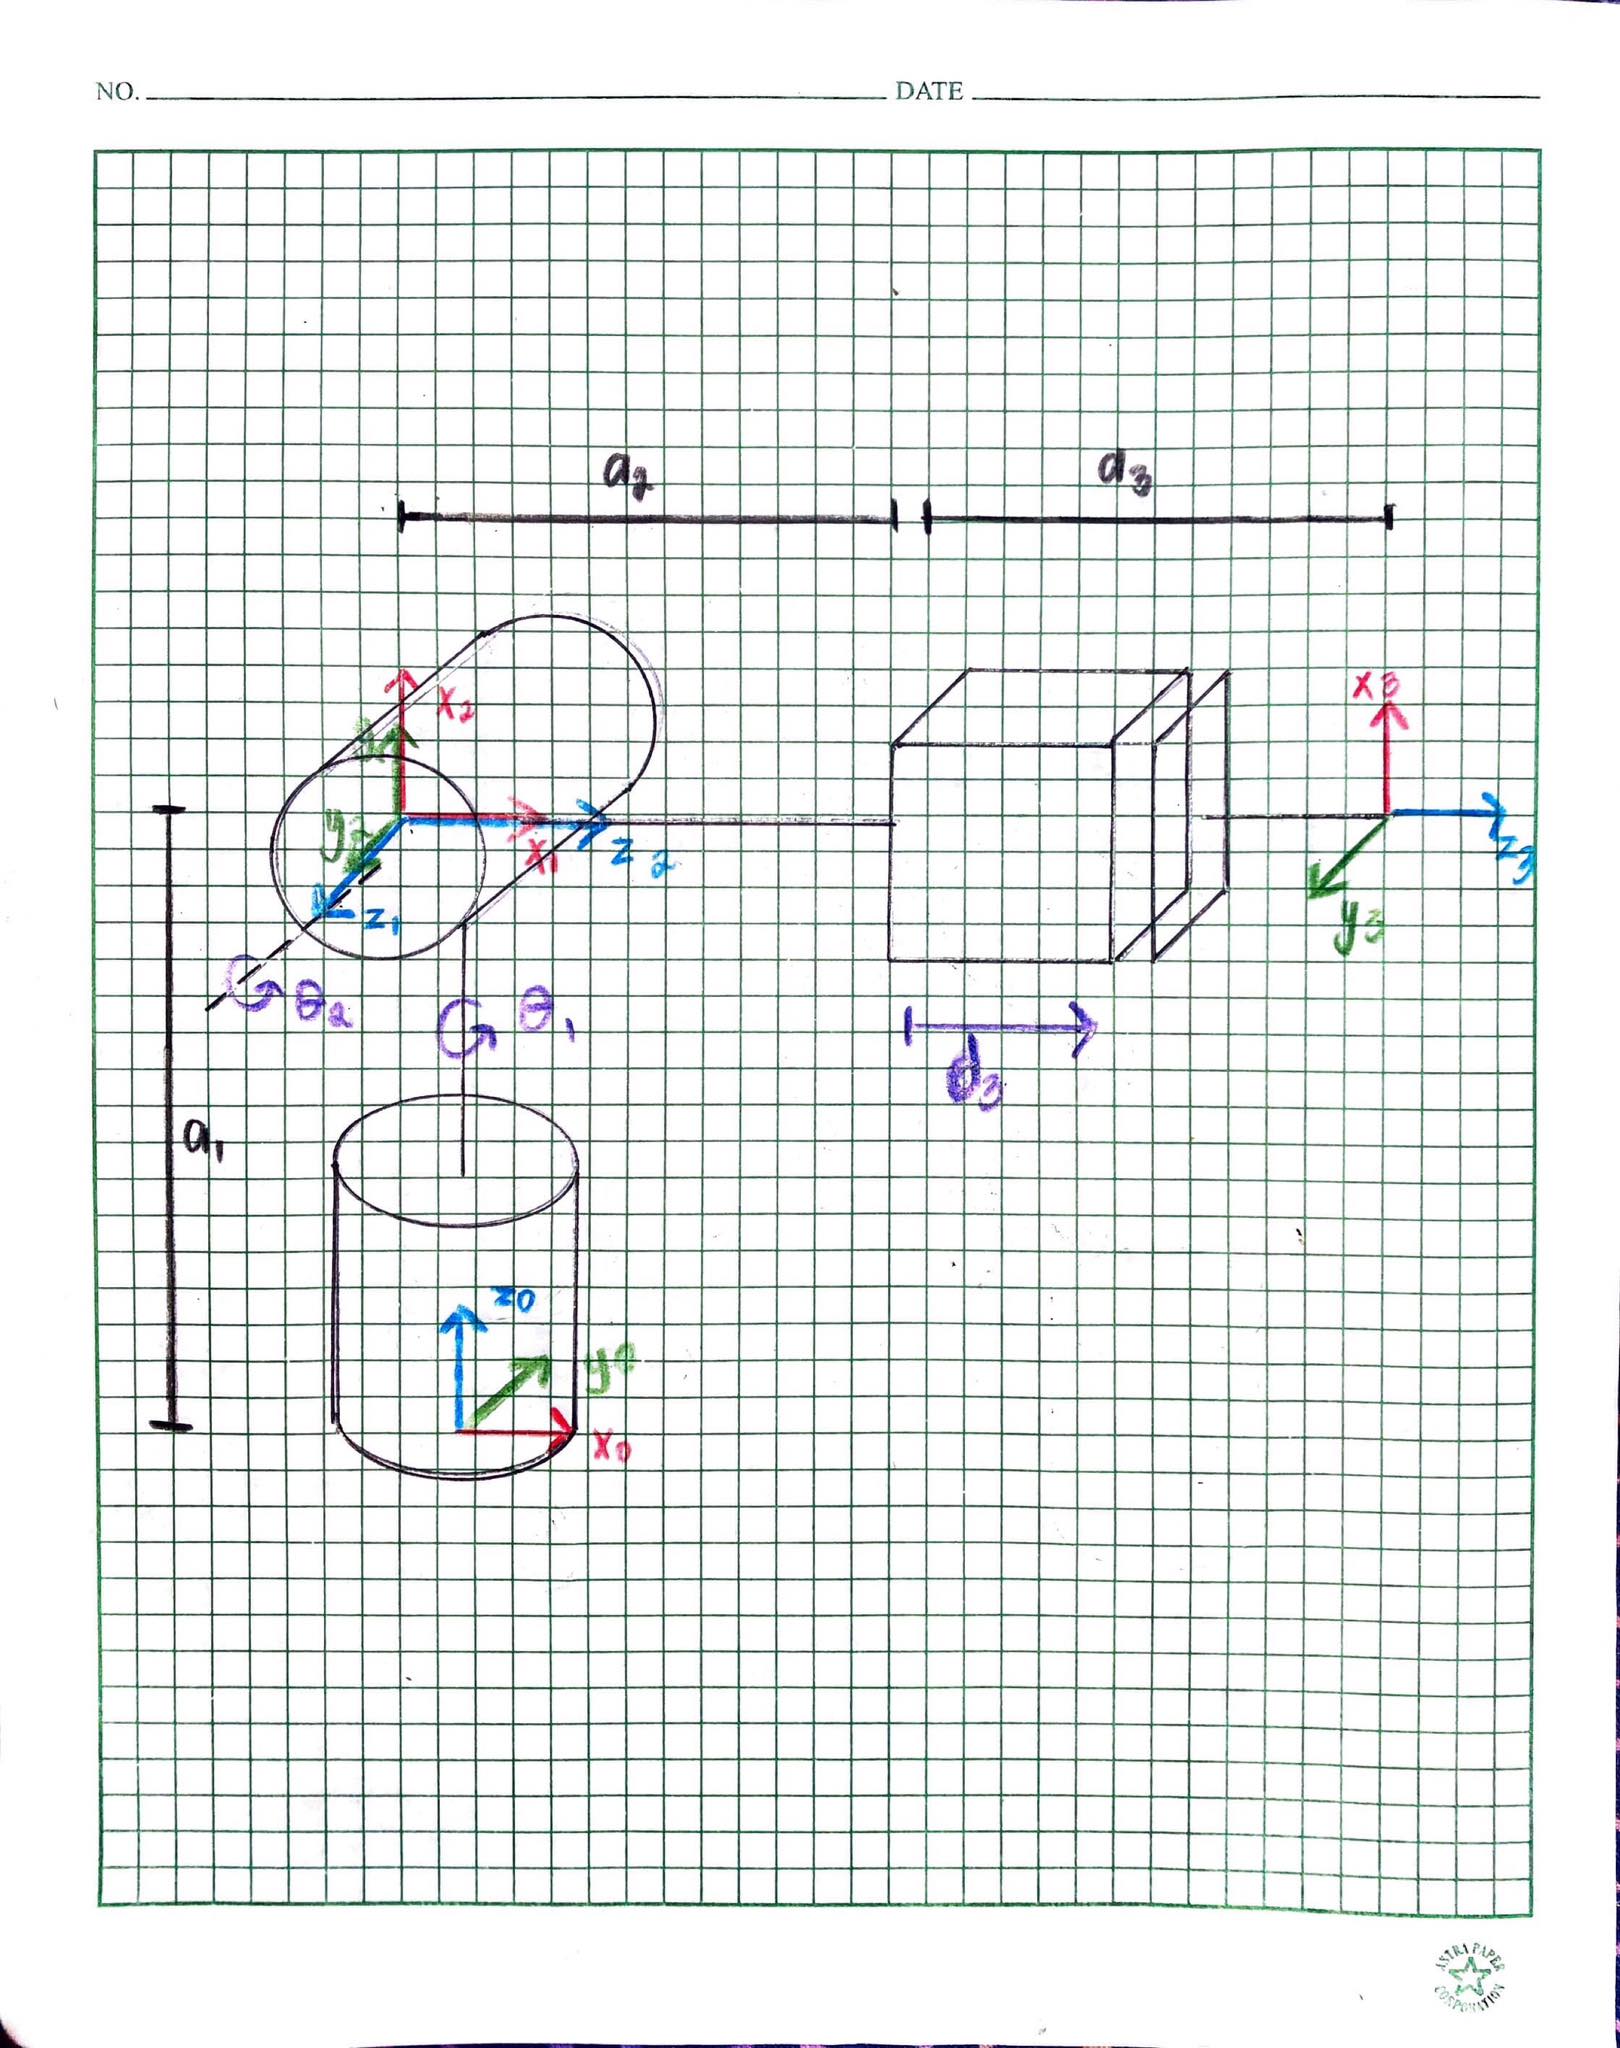 NO. DATE
a2 a3
x2
x3
y2
x1
z2
z3
z1
y3
θ2
θ1
d3
a1
z0
y0
x0
ASTRA PAPER
CORPORATION